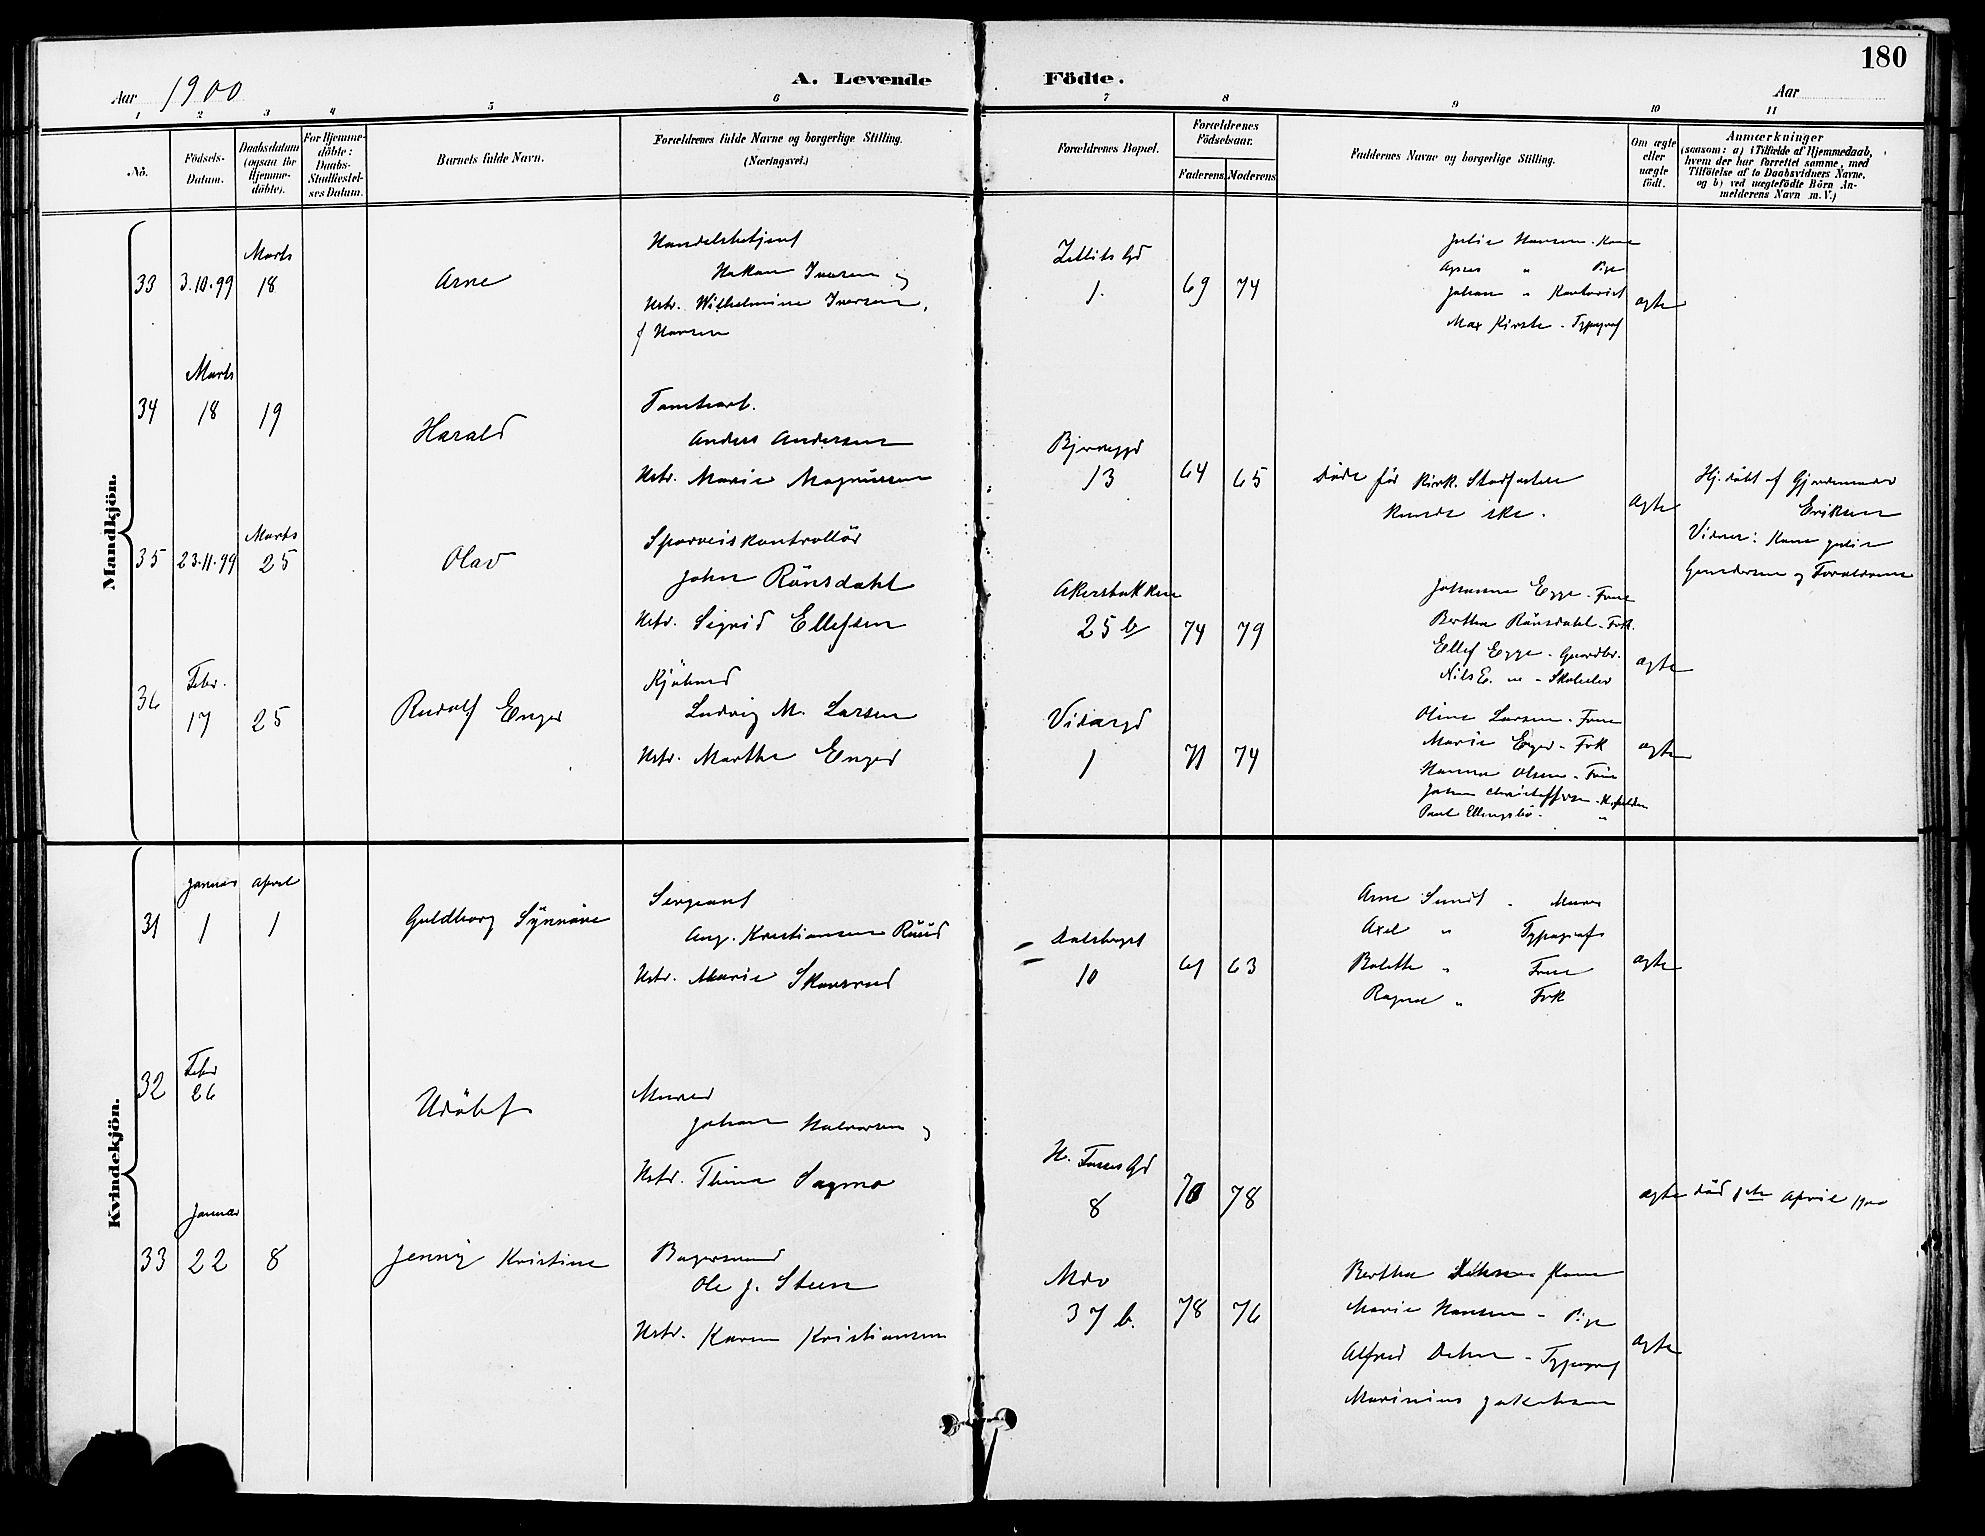 180
Aar 1900
A. Levende Födte.
Aar
1 2 3 4 5 6 7 8 9 10 11
No.
Födsels-Datum.
Daabsdatum (ogsaa for Hjemme-döbte).
For Hjemme-döbte: Daabs-Stadfæstel-ses Datum.
Barnets fulde Navn.
Forældrenes fulde Navne og borgerlige Stilling. (Næringsvei.)
Forældrenes Bopæl.
Forældrenes Födselsaar.
Faderens. Moderens.
Faddernes Navne og borgerlige Stilling.
Om ægte eller uægte födt.
Anmærkninger
(saasom: a) i Tilfælde af Hjemmedaab, hvem der har forrettet samme, med Tilföielse af to Daabsvidners Navne, og b) ved uægtefödte Börn An-melderens Navn m. V.)
Mandkjön.
33 3.10.99 Marts 18 Arne
Handelsbetjent
Hakon Iversen og
Hstr. Wilhelmine Iversen,
f Hansen
1. 69 74
Julie Hansen - Kone
Agnes " Pige
Johan " Kontorist
Max Kirste - Typograf
ægte
34 Marts 18 19 Harald
Anders Andersen
Hstr. Marie Magnussen
13 64 65
Döde för Kirk. Stadfæstelse
kunde ske.
ægte
Hj. döbt af Gjordemoder
Eriksen
Vidner: Kone Julie
Gundersen og Forældrene
35 23.11.99 Marts 25 Olav
Sporveiskontrollör
John Rönsdahl
Hstr. Sigrid Ellefsen
Akersbakken
25 b 74 79
Johanne Egge - Frue
Bertha Rönsdahl - Frk.
Ellef Egge - Gaardbr.
Nils E. - Skoleelev
ægte
36 Febr. 17 25 Rudolf Enger
Kjöbmd
Ludvig M. Larsen
Hstr. Marthe Enger
Vidargd
1 71 74
Oline Larsen - Frue
Marie Enger - Frk
Hanna Olsen - Frue
Johan Christoffersen -
Paul Ellingsbö - "
ægte
Kvindekjön.
31 Januar 1 April 1 Guldborg Synnöve
Sergeant
Aug. Kristiansen Ruud
Hstr. Marie Skansrud
Dalsberget
10 61 63
Arne Sundt - Murer
Axel " Typograf
Bolette " Frue
Ragna " Frk
ægte
32 Febr 26 Udöbt
Murer
Johan Halvorsen og
Hstr. Thina Sagmo
8 70 78
ægte
död 1ste April 1900
33 Januar 22 8 Jenny Kristine
Bagersvend
Ole J. Steen
Hstr. Karen Kristiansen
37 b. 78 76
Bertha Kone
Marie Hansen - Pige
Alfred - Typograf
Marinius Jakobsen
ægte